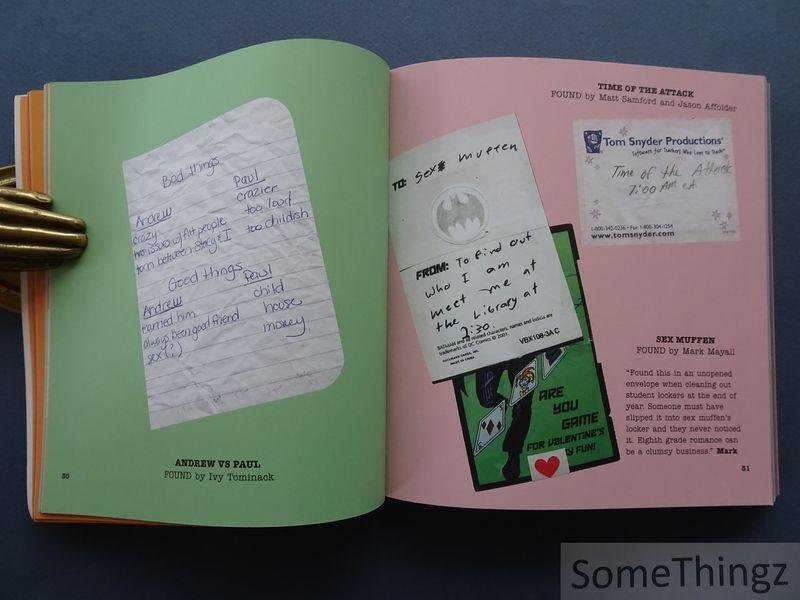 Bad things
Andrew
crazy
has issues w/ fat people
torn between Stacy & I
Paul
crazier
too loud
too childish
Good things
Andrew
married him
always been good friend
sex (?)
Paul
child
house
money
ANDREW VS PAUL
FOUND by Ivy Tominack
30
TO: sex muffen
FROM: To find out
who I am
meet me at
the Library at
2:30.
BATMAN and all related characters, names and indicia are
trademarks of DC Comics © 2001.
HALLMARK CARDS, INC.
VBX108-3A C
ARE
YOU
GAME
FOR VALENTINE'S
Y FUN!
TIME OF THE ATTACK
FOUND by Matt Samford and Jason Affolder
Tom Snyder Productions®
Software for Teachers Who Love to Teach™
Time of the Attack
7:00 AM est
1-800-342-0236 • Fax: 1-800-304-1254
www.tomsnyder.com
SEX MUFFEN
FOUND by Mark Mayall
"Found this in an unopened
envelope when cleaning out
student lockers at the end of
year. Someone must have
slipped it into sex muffen's
locker and they never noticed
it. Eighth grade romance can
be a clumsy business." Mark
31
SomeThingz